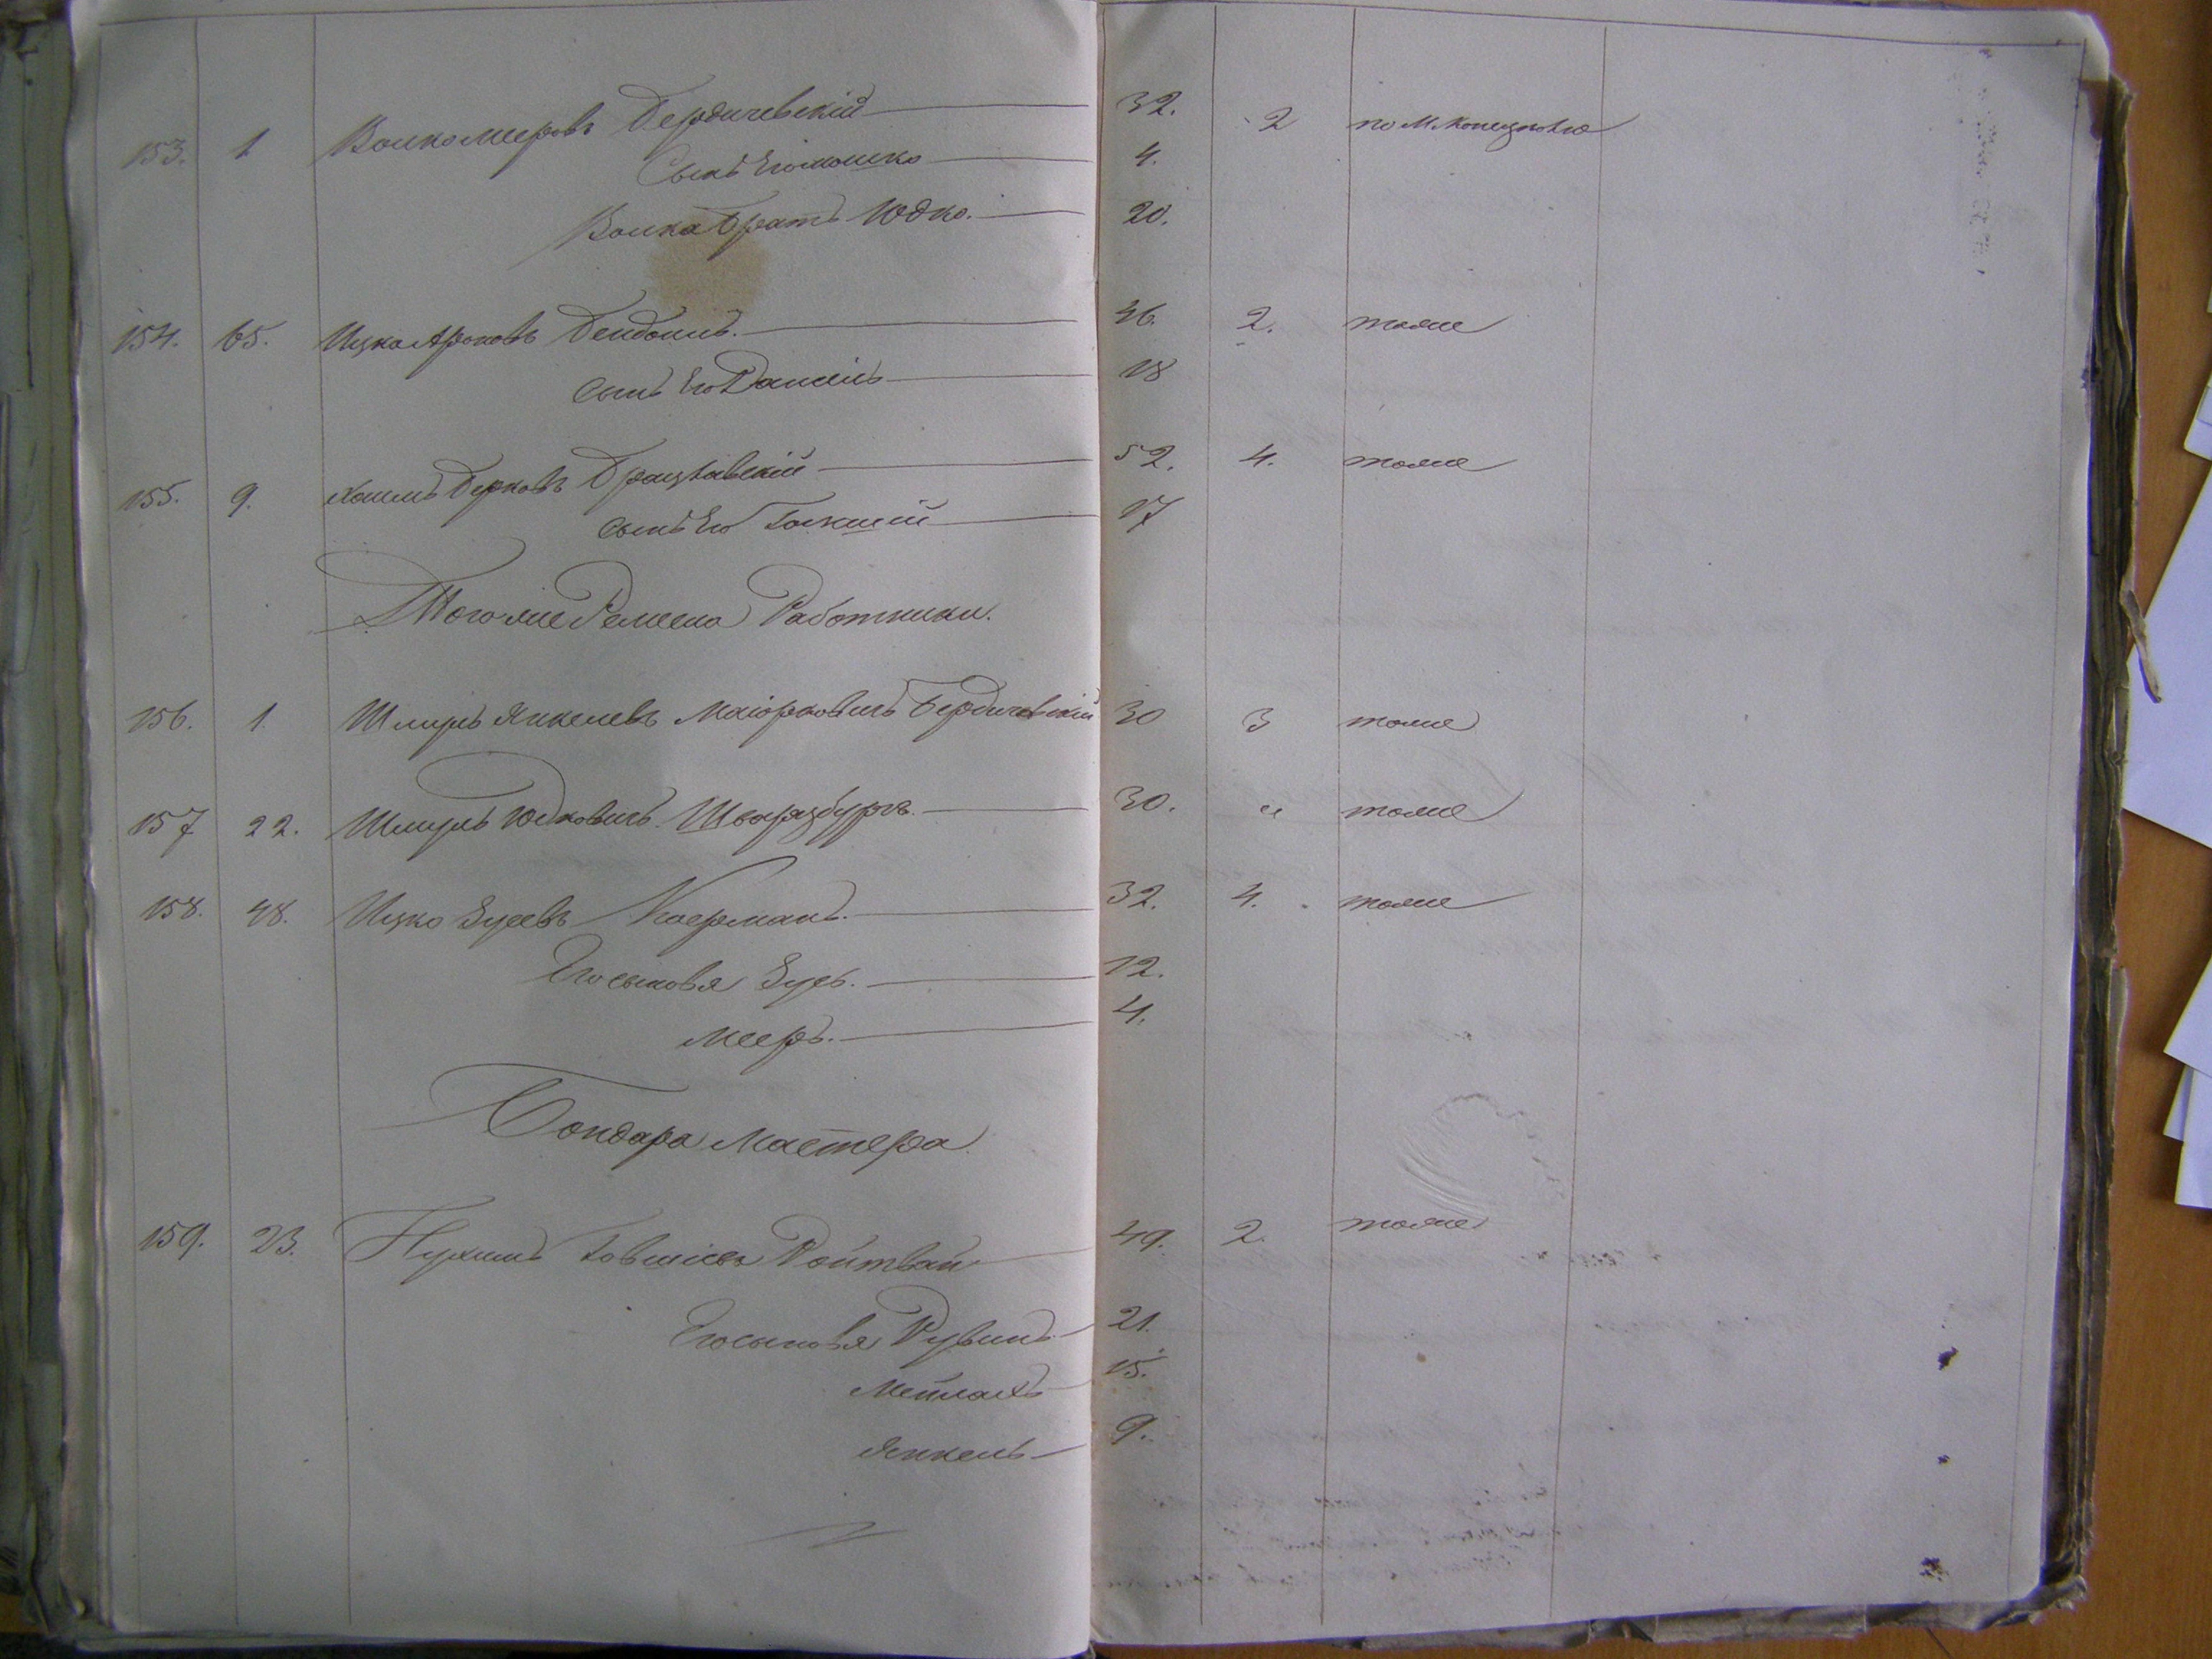 153. 1 Волко Меерово Бердичевскій 32. 2 по М. Конецполю
Сынъ Его Мошко 4.
Волка братъ Юдко. 20.
154. 65. Ицко Ароновъ 46. 2. тоже
Сынъ Его Даниель 18
155. 9. Хаимъ Берковъ Брацлавскій 52. 4. тоже
Сынъ Его 17
Того же Ремесла Работники.
156. 1. Шмуль Янкелевъ Маіорковичъ Бердичевскій 30 3 тоже
157 22. Шмуль Юдковичъ Шварцбургъ. 30. " тоже
158. 48. Ицко Зусевъ Коерманъ. 32. 4. тоже
Его сыновья Зусь. 12.
Мееръ. 4.
Бондара Мастера
159. 23. Нухимъ Ройтвайн 49. 2. тоже
Его сыновья Рувинъ 21.
Мейлахъ 15.
Янкель 9.